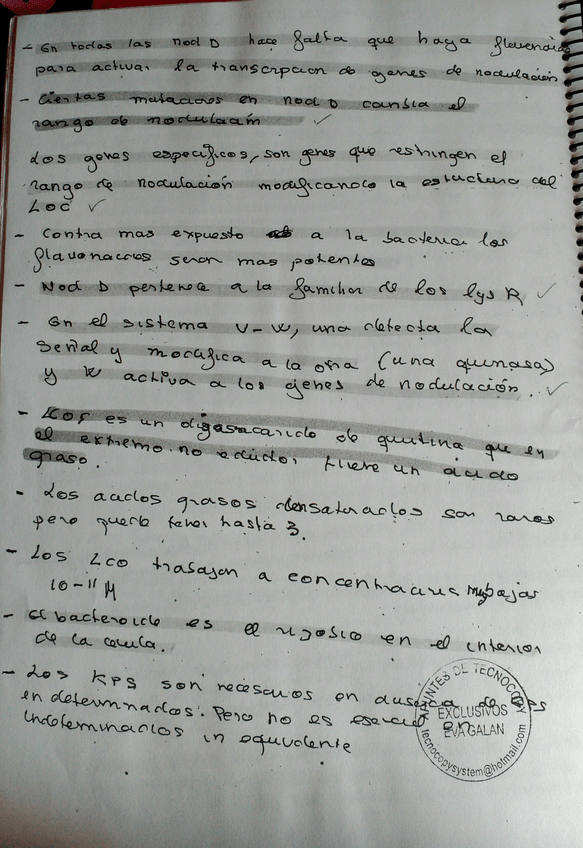 - En todas las nod D hace falta que haya flavonoides
para activar la transcripcion de genes de nodulación
- Ciertas mutaciones en nod D cambia el
rango de nodulación ✓
Los genes especificos, son genes que restringen el
rango de nodulación modificando la estructura del
LOC ✓
- Contra mas expuesto a la bacteria los
flavonoides seran mas potentes
- Nod D pertenece a la familia de los lys R ✓
- En el sistema V-W, una detecta la
señal y modifica a la otra (una quinasa)
y W activa a los genes de nodulación. ✓
- LCOs es un oligosacarido de quitina que en
el extremo no reductor tiene un ácido
graso.
- Los acidos grasos densaturados son raros
pero puede tener hasta 3.
- Los LCO trabajan a concentraciones muy bajas
10-11 M
- el bacteroide es el rizobio en el interior
de la celula.
- Los KPS son necesarios en ausencia de EPS
en determinados. Pero no es esencial en
indeterminados in equivalente
APUNTES DE TECNOCOPY
EXCLUSIVOS
EVA GALAN
tecnocopysystem@hotmail.com